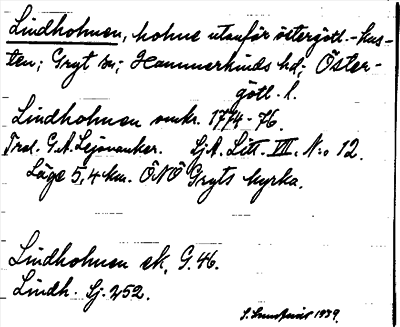 Lindholmen, holme utanför östergötl.-kus-
ten; Gryt sn; Hammarkinds hd; Öster-
götl. l.
Lindholmen omkr. 1774-76.
Trol. G. A. Lejonanker. SjA. Litt. VII. N:o 12.
Läge 5,4 km. ÖNÖ Gryts kyrka.
Lindholmen ek, G. 46.
Lindh. Sj. 252.
S. 1939.